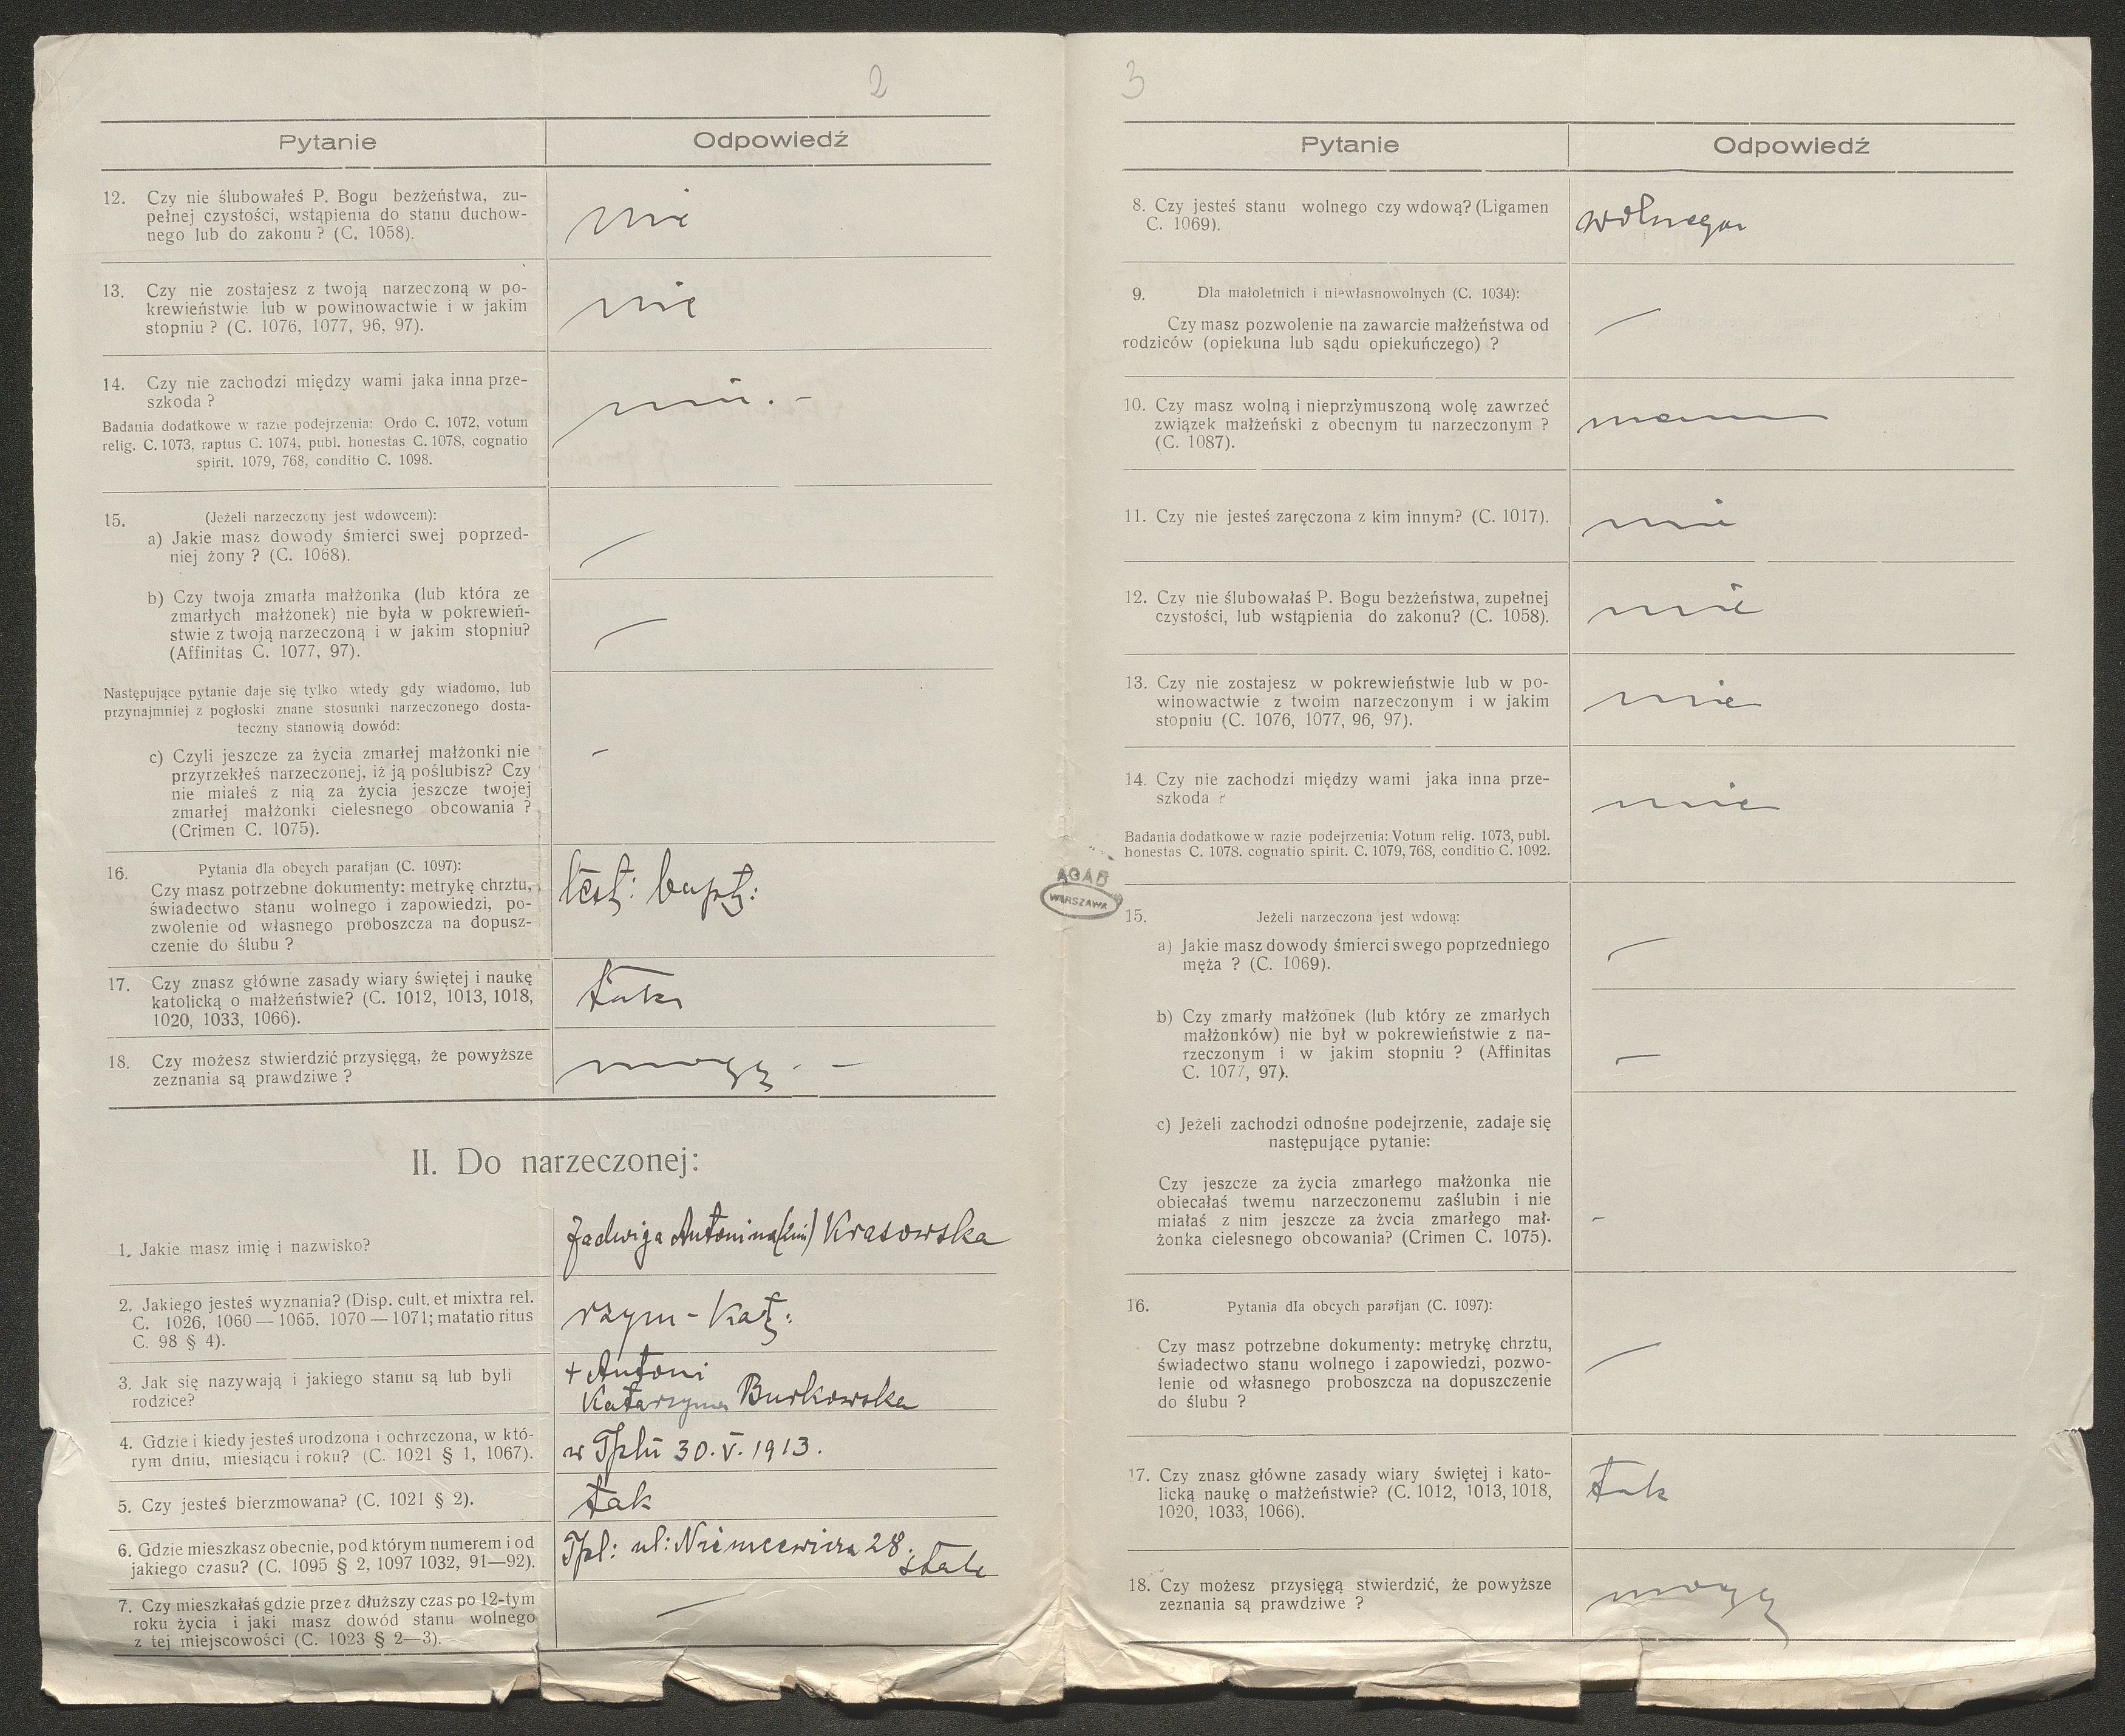 2
Pytanie
Odpowiedź
12. Czy nie ślubowałeś P. Bogu bezżeństwa, zu-
pełnej czystości, wstąpienia do stanu duchow-
nego lub do zakonu? (C. 1058).
nie
13. Czy nie zostajesz z twoją narzeczoną w po-
krewieństwie lub w powinowactwie i w jakim
stopniu? (C. 1076, 1077, 96, 97).
nie
14. Czy nie zachodzi między wami jaka inna prze-
szkoda?
Badania dodatkowe w razie podejrzenia: Ordo C. 1072, votum
relig. C. 1073, raptus C. 1074, publ. honestas C. 1078, cognatio
spirit. 1079, 768, conditio C. 1098.
nie. –
15. (Jeżeli narzeczony jest wdowcem):
a) Jakie masz dowody śmierci swej poprzed-
niej żony? (C. 1068).
—
b) Czy twoja zmarła małżonka (lub która ze
zmarłych małżonek) nie była w pokrewień-
stwie z twoją narzeczoną i w jakim stopniu?
(Affinitas C. 1077, 97).
—
Następujące pytanie daje się tylko wtedy gdy wiadomo, lub
przynajmniej z pogłoski znane stosunki narzeczonego dosta-
teczny stanowią dowód:
c) Czyli jeszcze za życia zmarłej małżonki nie
przyrzekłeś narzeczonej, iż ją poślubisz? Czy
nie miałeś z nią za życia jeszcze twojej
zmarłej małżonki cielesnego obcowania?
(Crimen C. 1075).
–
16. Pytania dla obcych parafjan (C. 1097):
Czy masz potrzebne dokumenty: metrykę chrztu,
świadectwo stanu wolnego i zapowiedzi, po-
zwolenie od własnego proboszcza na dopusz-
czenie do ślubu?
test: bapt:
17. Czy znasz główne zasady wiary świętej i naukę
katolicką o małżeństwie? (C. 1012, 1013, 1018,
1020, 1033, 1066).
tak
18. Czy możesz stwierdzić przysięgą, że powyższe
zeznania są prawdziwe?
mogę. –
II. Do narzeczonej:
1. Jakie masz imię i nazwisko?
Jadwiga Antonina Krasowska
2. Jakiego jesteś wyznania? (Disp. cult. et mixtra rel.
C. 1026, 1060 — 1065, 1070 — 1071; matatio ritus
C. 98 § 4).
rzym-kat:
3. Jak się nazywają i jakiego stanu są lub byli
rodzice?
+ Antoni
Katarzyna Burkowska
4. Gdzie i kiedy jesteś urodzona i ochrzczona, w któ-
rym dniu, miesiącu i roku? (C. 1021 § 1, 1067).
w Tplu 30. V. 1913.
5. Czy jesteś bierzmowana? (C. 1021 § 2).
tak
6. Gdzie mieszkasz obecnie, pod którym numerem i od
jakiego czasu? (C. 1095 § 2, 1097 1032, 91—92).
Tpl: ul: Niemcewicza 28.
stale
7. Czy mieszkałaś gdzie przez dłuższy czas po 12-tym
roku życia i jaki masz dowód stanu wolnego
z tej miejscowości (C. 1023 § 2—3).
—
3
Pytanie
Odpowiedź
8. Czy jesteś stanu wolnego czy wdową? (Ligamen
C. 1069).
wolnego
9. Dla małoletnich i niewłasnowolnych (C. 1034):
Czy masz pozwolenie na zawarcie małżeństwa od
rodziców (opiekuna lub sądu opiekuńczego)?
—
10. Czy masz wolną i nieprzymuszoną wolę zawrzeć
związek małżeński z obecnym tu narzeczonym?
(C. 1087).
mam
11. Czy nie jesteś zaręczona z kim innym? (C. 1017).
nie
12. Czy nie ślubowałaś P. Bogu bezżeństwa, zupełnej
czystości, lub wstąpienia do zakonu? (C. 1058).
nie
13. Czy nie zostajesz w pokrewieństwie lub w po-
winowactwie z twoim narzeczonym i w jakim
stopniu (C. 1076, 1077, 96, 97).
nie
14. Czy nie zachodzi między wami jaka inna prze-
szkoda?
nie
Badania dodatkowe w razie podejrzenia: Votum relig. 1073, publ.
honestas C. 1078. cognatio spirit. C. 1079, 768, conditio C. 1092.
AGAD
WARSZAWA
15. Jeżeli narzeczona jest wdową:
a) Jakie masz dowody śmierci swego poprzedniego
męża? (C. 1069).
—
b) Czy zmarły małżonek (lub który ze zmarłych
małżonków) nie był w pokrewieństwie z na-
rzeczonym i w jakim stopniu? (Affinitas
C. 1077, 97).
—
c) Jeżeli zachodzi odnośne podejrzenie, zadaje się
następujące pytanie:
Czy jeszcze za życia zmarłego małżonka nie
obiecałaś twemu narzeczonemu zaślubin i nie
miałaś z nim jeszcze za życia zmarłego mał-
żonka cielesnego obcowania? (Crimen C. 1075).
–
16. Pytania dla obcych parafjan (C. 1097):
Czy masz potrzebne dokumenty: metrykę chrztu,
świadectwo stanu wolnego i zapowiedzi, pozwo-
lenie od własnego proboszcza na dopuszczenie
do ślubu?
—
17. Czy znasz główne zasady wiary świętej i kato-
licką naukę o małżeństwie? (C. 1012, 1013, 1018,
1020, 1033, 1066).
tak
18. Czy możesz przysięgą stwierdzić, że powyższe
zeznania są prawdziwe?
mogę